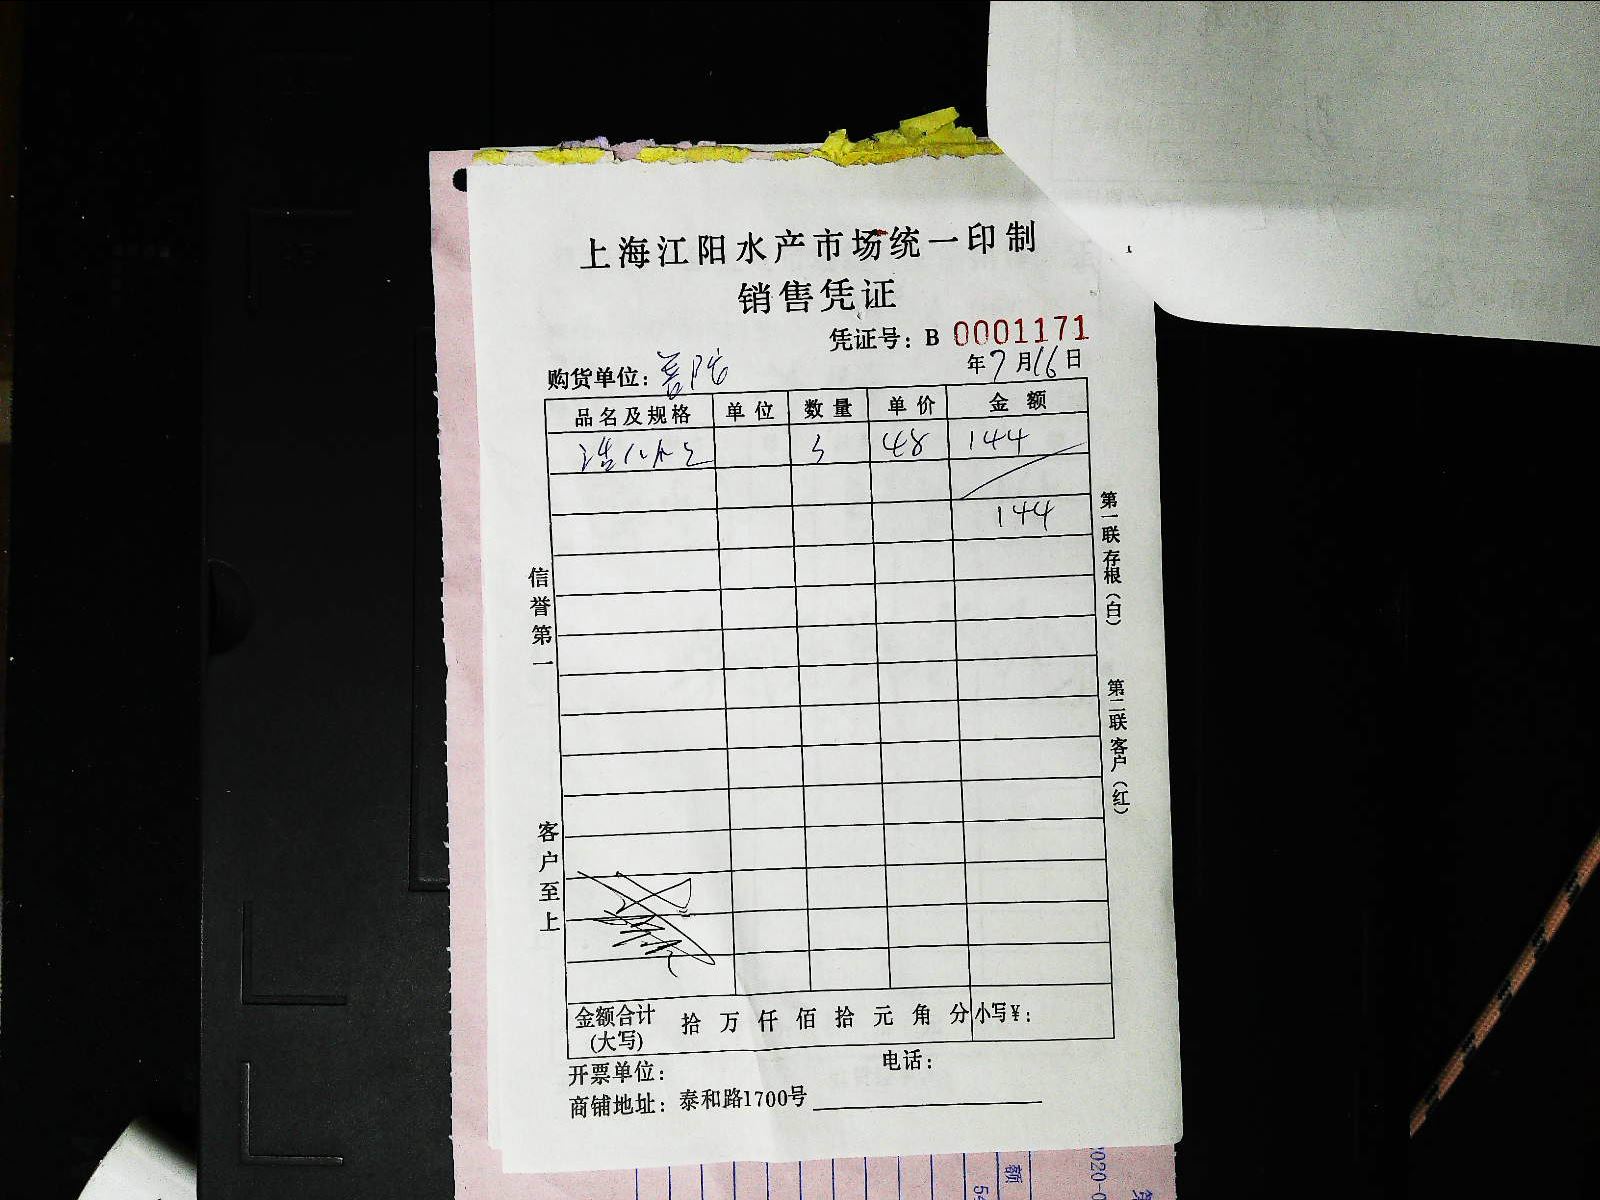 上海江阳水产市场统一印制
销售凭证
凭证号：B 0001171
购货单位： 年7月16日
品名及规格 单位 数量 单价 金额
3 48 144
144
信誉第一
客户至上
第一联存根（白）
第二联客户（红）
金额合计(大写) 拾 万 仟 佰 拾 元 角 分 小写¥：
开票单位： 电话：
商铺地址：泰和路1700号
额